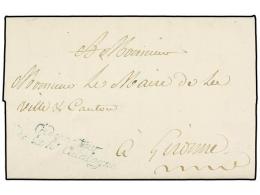 A Monsieur
Monsieur Le Maire de la
ville & Canton
à Gironne